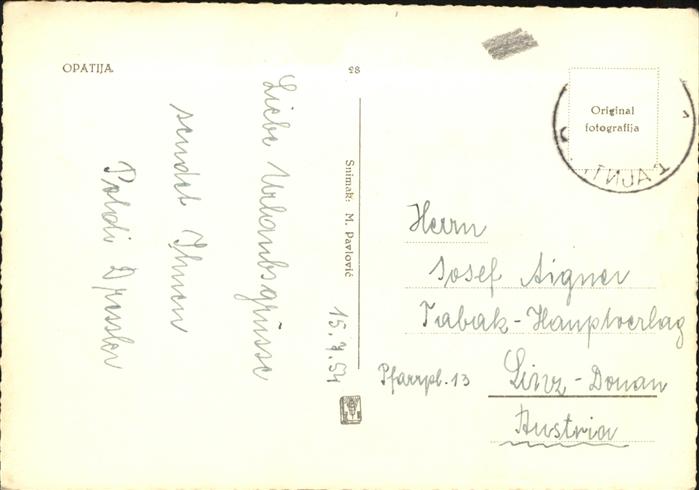 OPATIJA
28
Liebe Urlaubsgrüsse
sendet Ihnen
Poldi Dressler
15.7.54
Snimak: M. Pavlović
Original
fotografija
Herrn
Josef Aigner
Tabak-Hauptverlag
Pfarrpl. 13 Linz-Donau
Austria